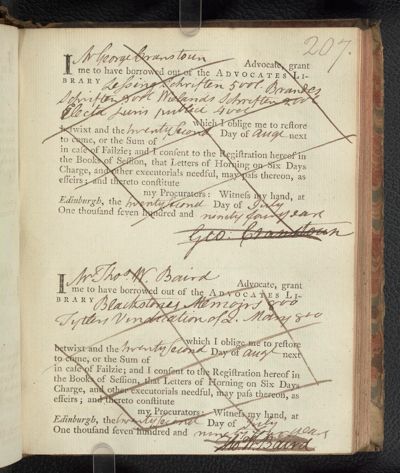 207.
I Mr George Cranstoun Advocate, grant
me to have borrowed out of the ADVOCATES LI-
BRARY Lessing Schriften 5 vol. Brandes
Schriften 8vol Wielands Schriften
Electa Juris
which I oblige me to restore
betwixt and the twenty Second Day of Augt next
to come, or the Sum of
in case of Failzie; and I consent to the Registration hereof in
the Books of Session, that Letters of Horning on Six Days
Charge, and other executorials needful, may pass thereon, as
effeirs; and thereto constitute
my Procurators: Witness my hand, at
Edinburgh, the twenty second Day of July
One thousand seven hundred and ninety four years
Geo. Cranstoun
I Mr Thos W. Baird Advocate, grant
me to have borrowed out of the ADVOCATES LI-
BRARY Blackstones Memoirs 8vo
Tytlers Vindication of Q. Mary 8vo
which I oblige me to restore
betwixt and the twenty second Day of Augt next
to come, or the Sum of
in case of Failzie; and I consent to the Registration hereof in
the Books of Session, that Letters of Horning on Six Days
Charge, and other executorials needful, may pass thereon, as
effeirs; and thereto constitute
my Procurators: Witness my hand, at
Edinburgh, the twenty second Day of July
One thousand seven hundred and ninety four years
Tho. W. Baird